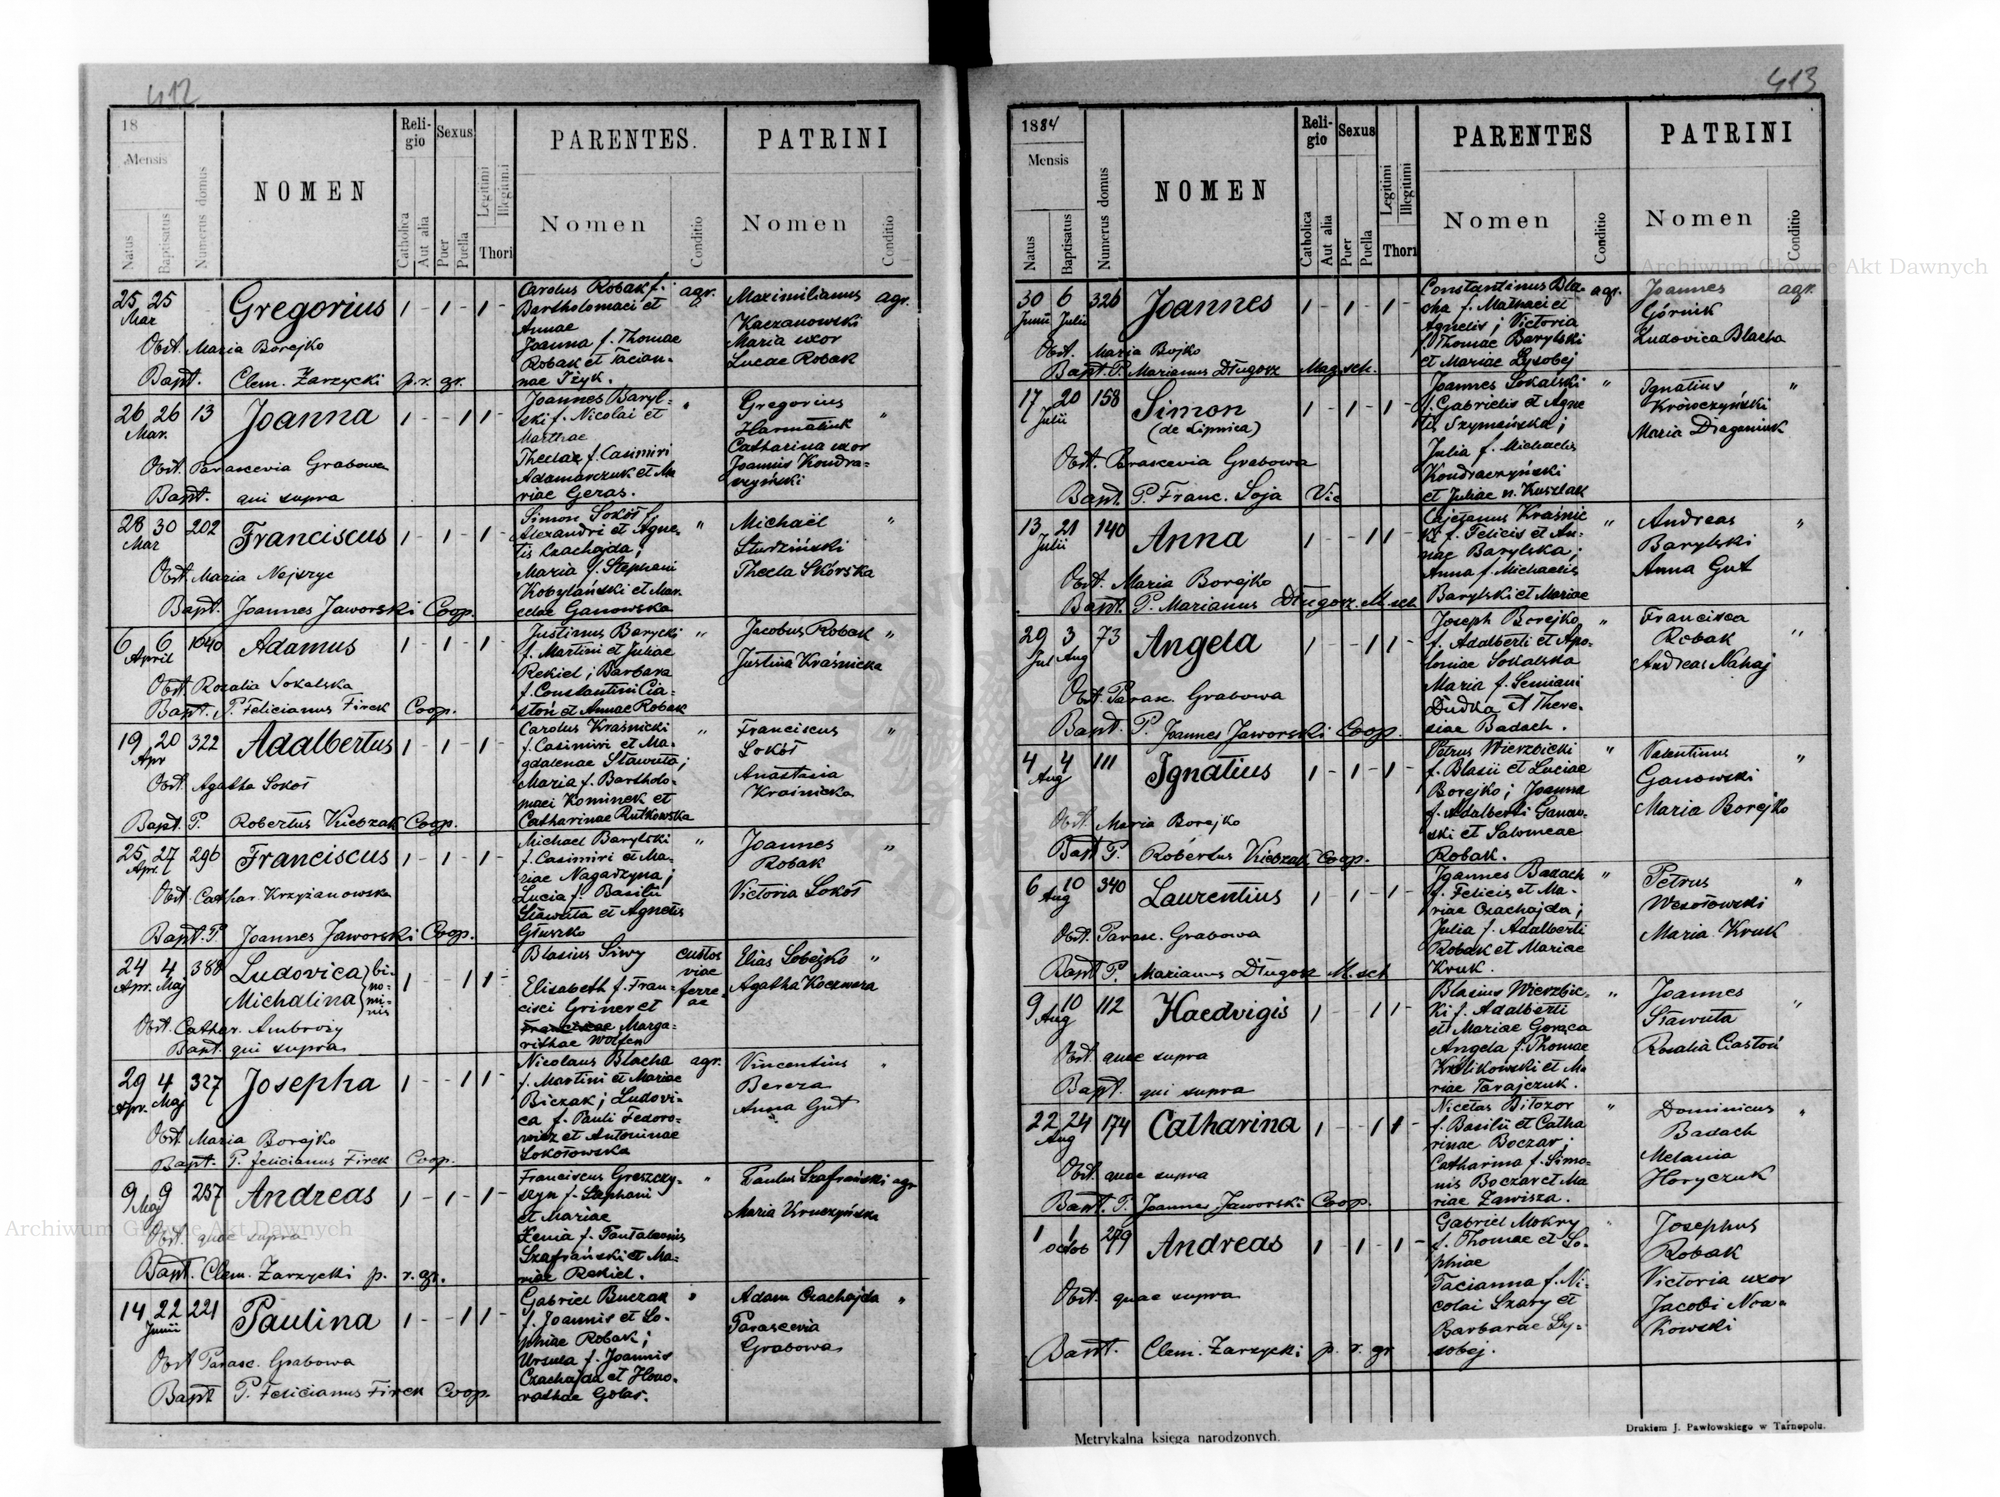 412
18
Mensis
Natus
Baptisatus
Numerus domus
NOMEN
Reli-
gio
Catholica
Aut alia
Sexus
Puer
Puella
Legitimi
Illegitimi
Thori
PARENTES.
Nomen
Conditio
PATRINI
Nomen
Conditio
25 25 Gregorius 1 - 1 - 1 -
Mar
Obst. Maria Borejko
Bapt. Clem. Zarzycki p. r. gr.
Carolus Robak f. agr.
Bartholomaei et
Annae
Joanna f. Thomae
Robak et Tacian-
nae Iżyk.
Maximilianus agr.
Kaczanowski
Maria uxor
Lucae Robak
26 26 13 Joanna 1 - - 1 1 -
Mar.
Obst. Parascevia Grabowa
Bapt. qui supra
Joannes Baryl- "
ski f. Nicolai et
Marthae
Theclae f. Casimiri
Adamarczuk et Ma
riae Geras.
Gregorius "
Harmatiuk
Catharina uxor
Joannis Kondra-
czyński
28 30 202 Franciscus 1 - 1 - 1 -
Mar
Obst. Maria Nejszyc
Bapt. Joannes Jaworski Coop.
Simon Sokół f. "
Alexandri et Agne-
tis Czachajda;
Maria f. Stephani
Kobylański et Mar-
celae Ganowska
Michaël "
Studziński
Thecla Skórska
6 6 1040 Adamus 1 - 1 - 1 -
April
Obst. Rozalia Sokalska
Bapt. P. Felicianus Firek Coop.
Justinus Barycki "
f. Martini et Juliae
Rekiel; Barbara
f. Constantini Cia-
stoń et Annae Robak
Jacobus Robak "
Justina Kraśnicka
19 20 322 Adalbertus 1 - 1 - 1 -
Apr
Obst. Agatha Sokół
Bapt. P. Robertus Kiebzak Coop.
Carolus Kraśnicki "
f. Casimiri et Ma-
gdalenae Sławuta;
Maria f. Bartholo-
maei Kominek et
Catharinae Rutkowska
Franciscus "
Sokół
Anastasia
Kraśnicka
25 27 296 Franciscus 1 - 1 - 1 -
Apr.
Obst. Cathar. Krzyżanowska
Bapt. P. Joannes Jaworski Coop.
Michael Barylski "
f. Casimiri et Ma-
riae Nagadzyna;
Lucia f. Basilii
Sławuta et Agnetis
Głuszko
Joannes "
Robak
Victoria Sokół
24 4 388 Ludovica bi- 1 - - 1 1 -
Apr. Maj Michalina no-
mi-
nis
Obst. Cathar. Ambroży
Bapt. qui supra
Blasius Siwy custos
viae
Elisabeth f. Fran- ferre-
cisci Griner et ae
Franciscae Marga-
rithae Wolfen
Elias Sobejko "
Agatha Koczwara
29 4 327 Josepha 1 - - 1 1 -
Apr. Maj
Obst. Maria Borejko
Bapt. P. Felicianus Firek Coop.
Nicolaus Blacha agr.
f. Martini et Mariae
Biczak; Ludovi-
ca f. Pauli Fedoro-
wicz et Antoninae
Sokołowska
Vincentius "
Bereza
Anna Gut
9 9 257 Andreas 1 - 1 - 1 -
Maj
Obst. quae supra
Bapt. Clem. Zarzycki p. r. gr.
Franciscus Greszczy- "
szyn f. Stephani
et Mariae
Xenia f. Pantaleonis
Szafrański et Ma-
riae Rekiel.
Paulus Szafrański agr
Maria Kruczyńska
14 22 221 Paulina 1 - - 1 1 -
Junii
Obst Parasc. Grabowa
Bapt P. Felicianus Firek Coop.
Gabriel Buczak "
f. Joannis et So-
phiae Robak;
Ursula f. Joannis
Czachajda et Hono-
rathae Golas.
Adam Czachajda "
Parascevia
Grabowa
413
1884
Mensis
Natus
Baptisatus
Numerus domus
NOMEN
Reli-
gio
Catholica
Aut alia
Sexus
Puer
Puella
Legitimi
Illegitimi
Thori
PARENTES
Nomen
Conditio
PATRINI
Nomen
Conditio
30 6 326 Joannes 1 - 1 - 1 -
Junii Julii
Obst. Maria Bojko
Bapt. P. Marianus Długosz Mag. sch.
Constantinus Bla- agr.
cha f. Mathaei et
Agnetis; Victoria
f. Thomae Barylski
et Mariae Lysobej
Joannes agr.
Górnik
Ludovica Blacha
17 20 158 Simon 1 - 1 - 1 -
Julii (de Lipnica)
Obst. Parascevia Grabowa
Bapt. P. Franc. Soja Vic
Joannes Sokalski "
f. Gabrielis et Agne
tis Szymańska;
Julia f. Michaelis
Kondraczyński
et Juliae n. Kuszlak
Ignatius "
Krówczyński
Maria Draganiuk
13 21 140 Anna 1 - - 1 1 -
Julii
Obst. Maria Borejko
Bapt. P. Marianus Długosz. M. sch
Cajetanus Kraśnic "
ki f. Felicis et An-
nae Barylska;
Anna f. Michaelis
Barylski et Mariae
Andreas "
Barylski
Anna Gut
29 3 73 Angela 1 - - 1 1 -
Jul Aug
Obst. Parasc. Grabowa
Bapt. P. Joannes Jaworski Coop.
Joseph Borejko "
f. Adalberti et Apo-
loniae Sokalska
Maria f. Semiani
Dudka et There-
siae Badach.
Francisca
Robak "
Andreas Nahaj
4 4 111 Ignatius 1 - 1 - 1 -
Aug
Obst. Maria Borejko
Bapt P. Robertus Kiebzak Coop.
Petrus Wierzbicki "
f. Blasii et Luciae
Borejko; Joanna
f. Adalberti Ganow-
ski et Salomeae
Robak.
Valentinus "
Ganowski
Maria Borejko
6 10 340 Laurentius 1 - 1 - 1 -
Aug
Obst. Parasc. Grabowa
Bapt P. Marianus Długosz M. sch
Joannes Badach "
f. Felicis et Ma-
riae Czachajda;
Julia f. Adalberti
Robak et Mariae
Kruk.
Petrus "
Wesołowski
Maria Kruk
9 10 112 Haedvigis 1 - - 1 1 -
Aug
Obst. quae supra
Bapt. qui supra
Blasius Wierzbic- "
ki f. Adalberti
et Mariae Gorąca
Angela f. Thomae
Królikowski et Ma
riae Tarajczuk.
Joannes "
Sławuta
Rosalia Ciastoń
22 24 174 Catharina 1 - - 1 1 -
Aug
Obst. quae supra
Bapt. P. Joannes Jaworski Coop.
Nicetas Bitozor "
f. Basilii et Catha
rinae Boczar;
Catharina f. Simo-
nis Boczar et Ma
riae Zawisza.
Dominicus "
Badach
Melania
Horyczuk
1 1 279 Andreas 1 - 1 - 1 -
Octob
Obst. quae supra
Bapt. Clem. Zarzycki p. r. gr
Gabriel Mokry "
f. Thomae et So-
phiae
Tacianna f. Ni-
colai Szary et
Barbarae Ly-
sobej.
Josephus
Robak
Victoria uxor
Jacobi Noa-
kowski
Metrykalna księga narodzonych.
Drukiem J. Pawłowskiego w Tarnopolu.
Archiwum Główne Akt Dawnych
Archiwum Główne Akt Dawnych